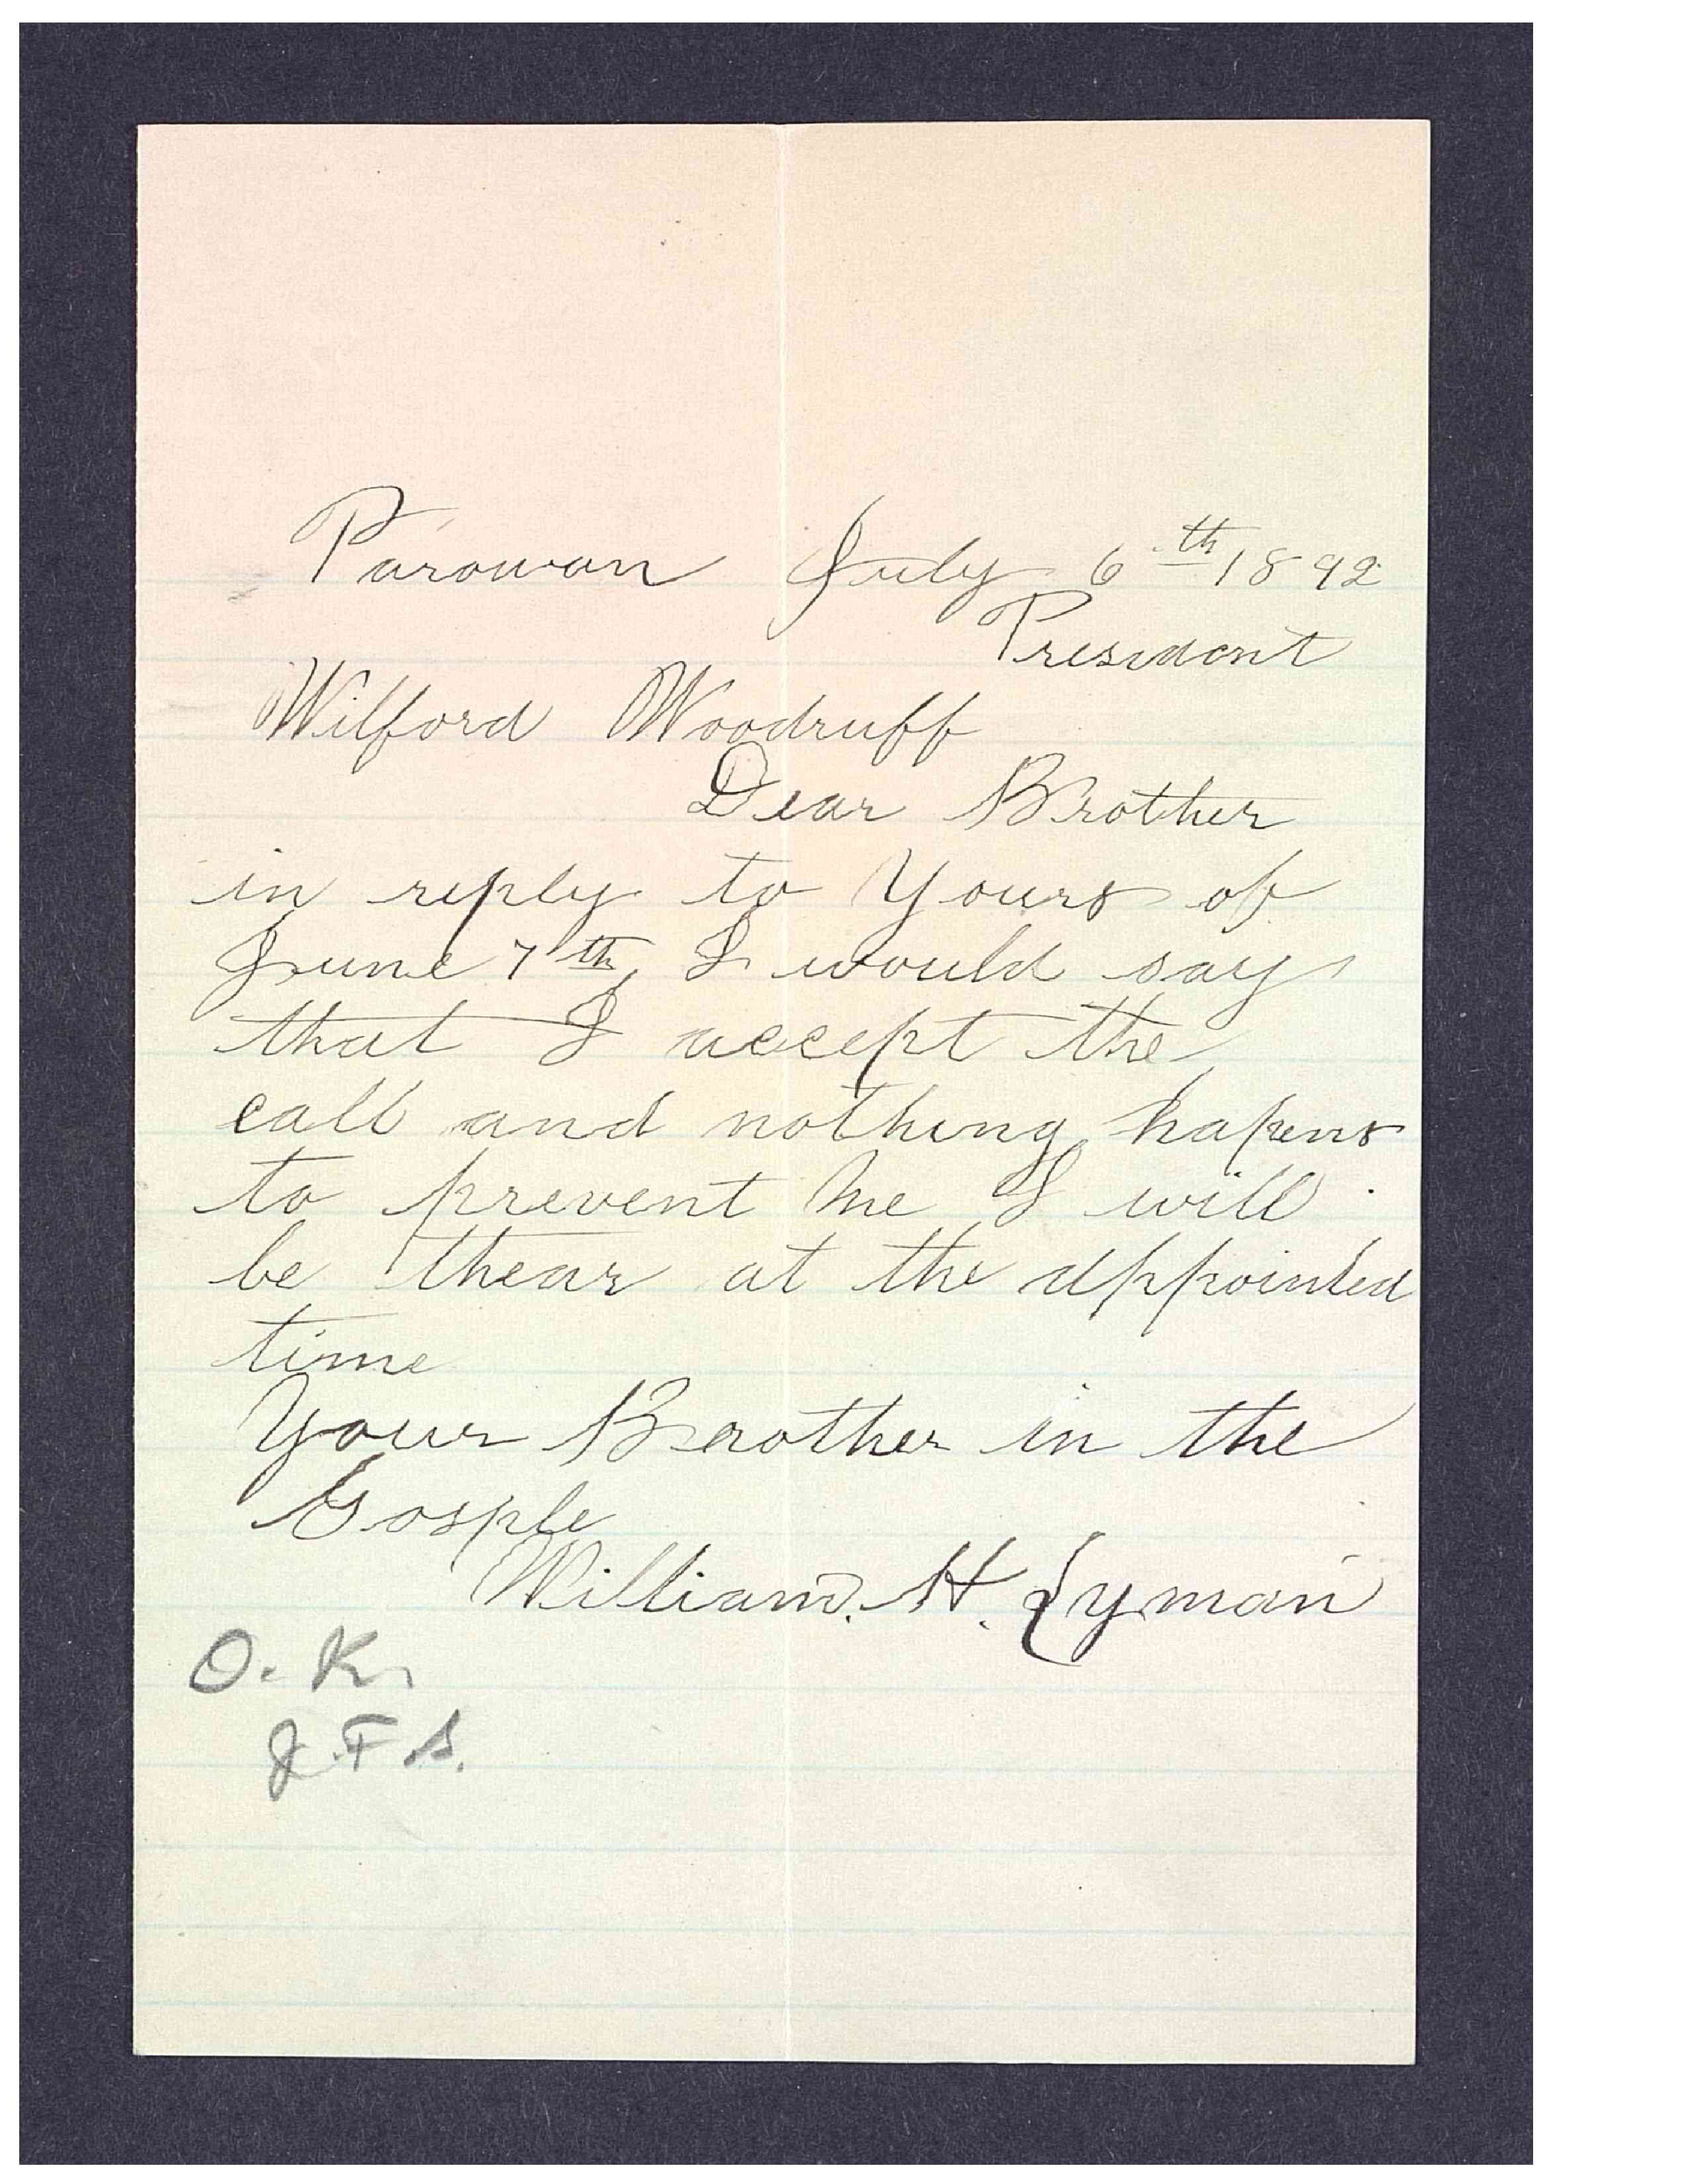 Parowan July 6th 1892
President
Wilford Woodruff
Dear Brother
in reply to Yours of
June 7th, I would say
that I accept the
call and nothing hapens
to prevent me I will
be thear at the appointed
time
Your Brother in the
Gosple
William. H. Lyman
O. K.
J. F. S.